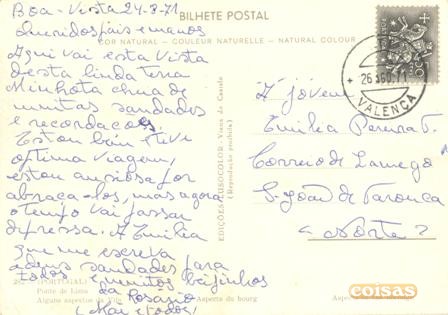 BILHETE POSTAL
COR NATURAL - COULEUR NATURELLE - NATURAL COLOUR
Boa-Vista 24-8-71
Queridos pais e manos
Aqui vai esta Vista
desta linda terra
Minhota cheia de
muitas saudades
e recordações.
Estou bem tive
optima viagem,
estou anciosa por
abraça-los, mas agora
o tempo vai passar
depressa. A Emilia
que me escreva
adeus saudades para
todos muitos beijinhos
da Rosario
(Mai etodos)
PORTUGAL
Ponte de Lima
Alguns aspectos da Vila
Aspects du bourg
EDIÇÕES LUSOCOLOR - Viana do Castelo
(Reprodução proibida)
26 AGO. 71
VALENÇA
A jovem
Emilia Pereira F.
Correio de Lamego
S. João de Tarouca
<Norte>
coisas